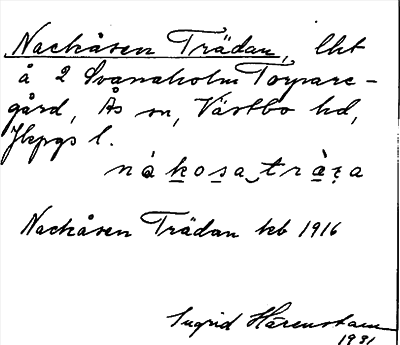 Nackåsen Trädan, lht
å 2 Svanaholm Torpare-
gård, Ås sn, Västbo hd,
Jkpgs l.
nàkosa‿tràza
Nackåsen Trädan kb 1916
Ingrid Härenstam
1931